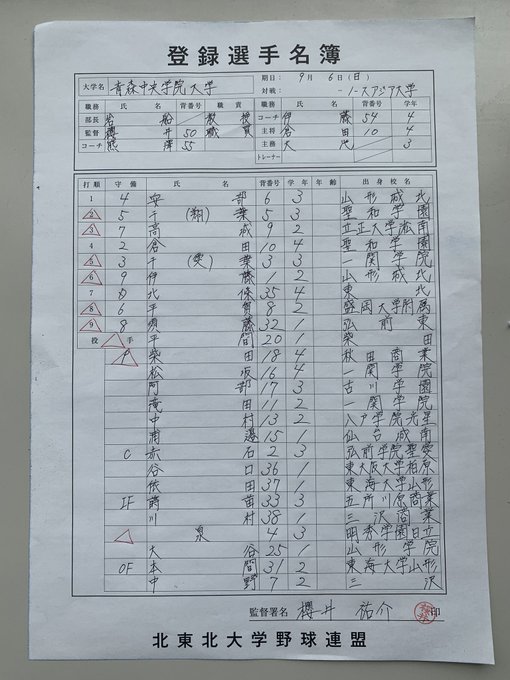 登録選手名簿
大学名 青森中央学院大学
期日： 9月 6日（日）
対戦： ノースアジア大学
職務 氏名 背番号 職責
職務 氏名 背番号 学年
部長 岩船 教授
コーチ 伊藤 54 4
監督 櫻井 50 職員
主将 倉田 10 4
コーチ 熊澤 55
主務 大 3
トレーナー
打順 守備 氏名 背番号 学年 年齢 出身校名
1 4 安部 6 3 山形城北
2 5 千（翔）葉 5 3 聖和学園
3 7 高成 9 2 立正大学淞南
4 2 倉田 10 4 聖和学園
5 3 千（奨）葉 3 3 一関学院
6 9 伊藤 1 2 山形城北
7 D 北條 35 4 東北
8 6 平賀 8 2 盛岡大学附属
9 8 齋藤 32 1 弘前東
投手 平間 20 1 柴田
P 柴田 18 4 秋田商業
松坂 16 4 一関学院
阿部 17 3 古川学園
滝田 11 2 一関学院
中村 13 2 八戸学院光星
渡邊 15 1 仙台城南
C 赤石 2 3 弘前学院聖愛
谷口 36 1 東大阪大学柏原
依田 37 1 東海大学山形
IF 苗 33 3 五所川原商業
川村 38 1 三沢商業
泉 4 3 明秀学園日立
大谷 25 1 山形学院
OF 本間 31 2 東海大学山形
中野 7 2 三沢
監督署名 櫻井 祐介 印
北東北大学野球連盟